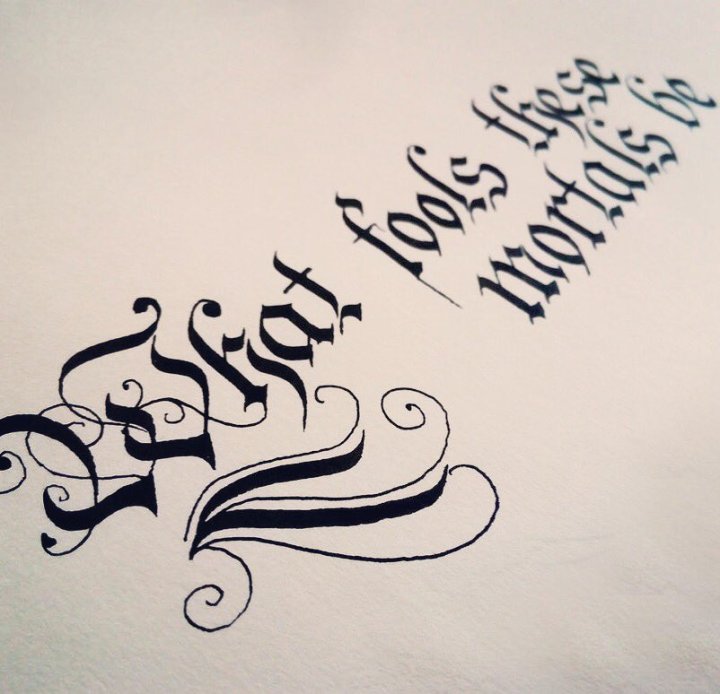 What fools these
mortals be